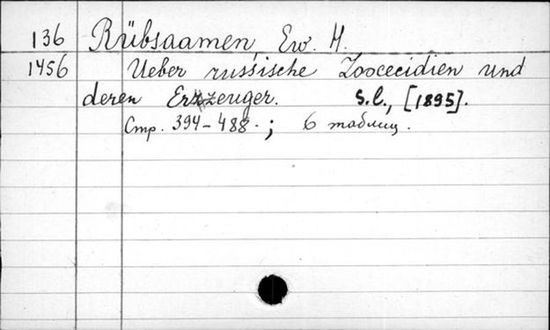 136 Rübsaamen, Ew. H.
1456 Ueber russische Zoocecidien und
deren Erzeuger. S.l., [1895].
Стр. 394-488.; 6 таблиц.